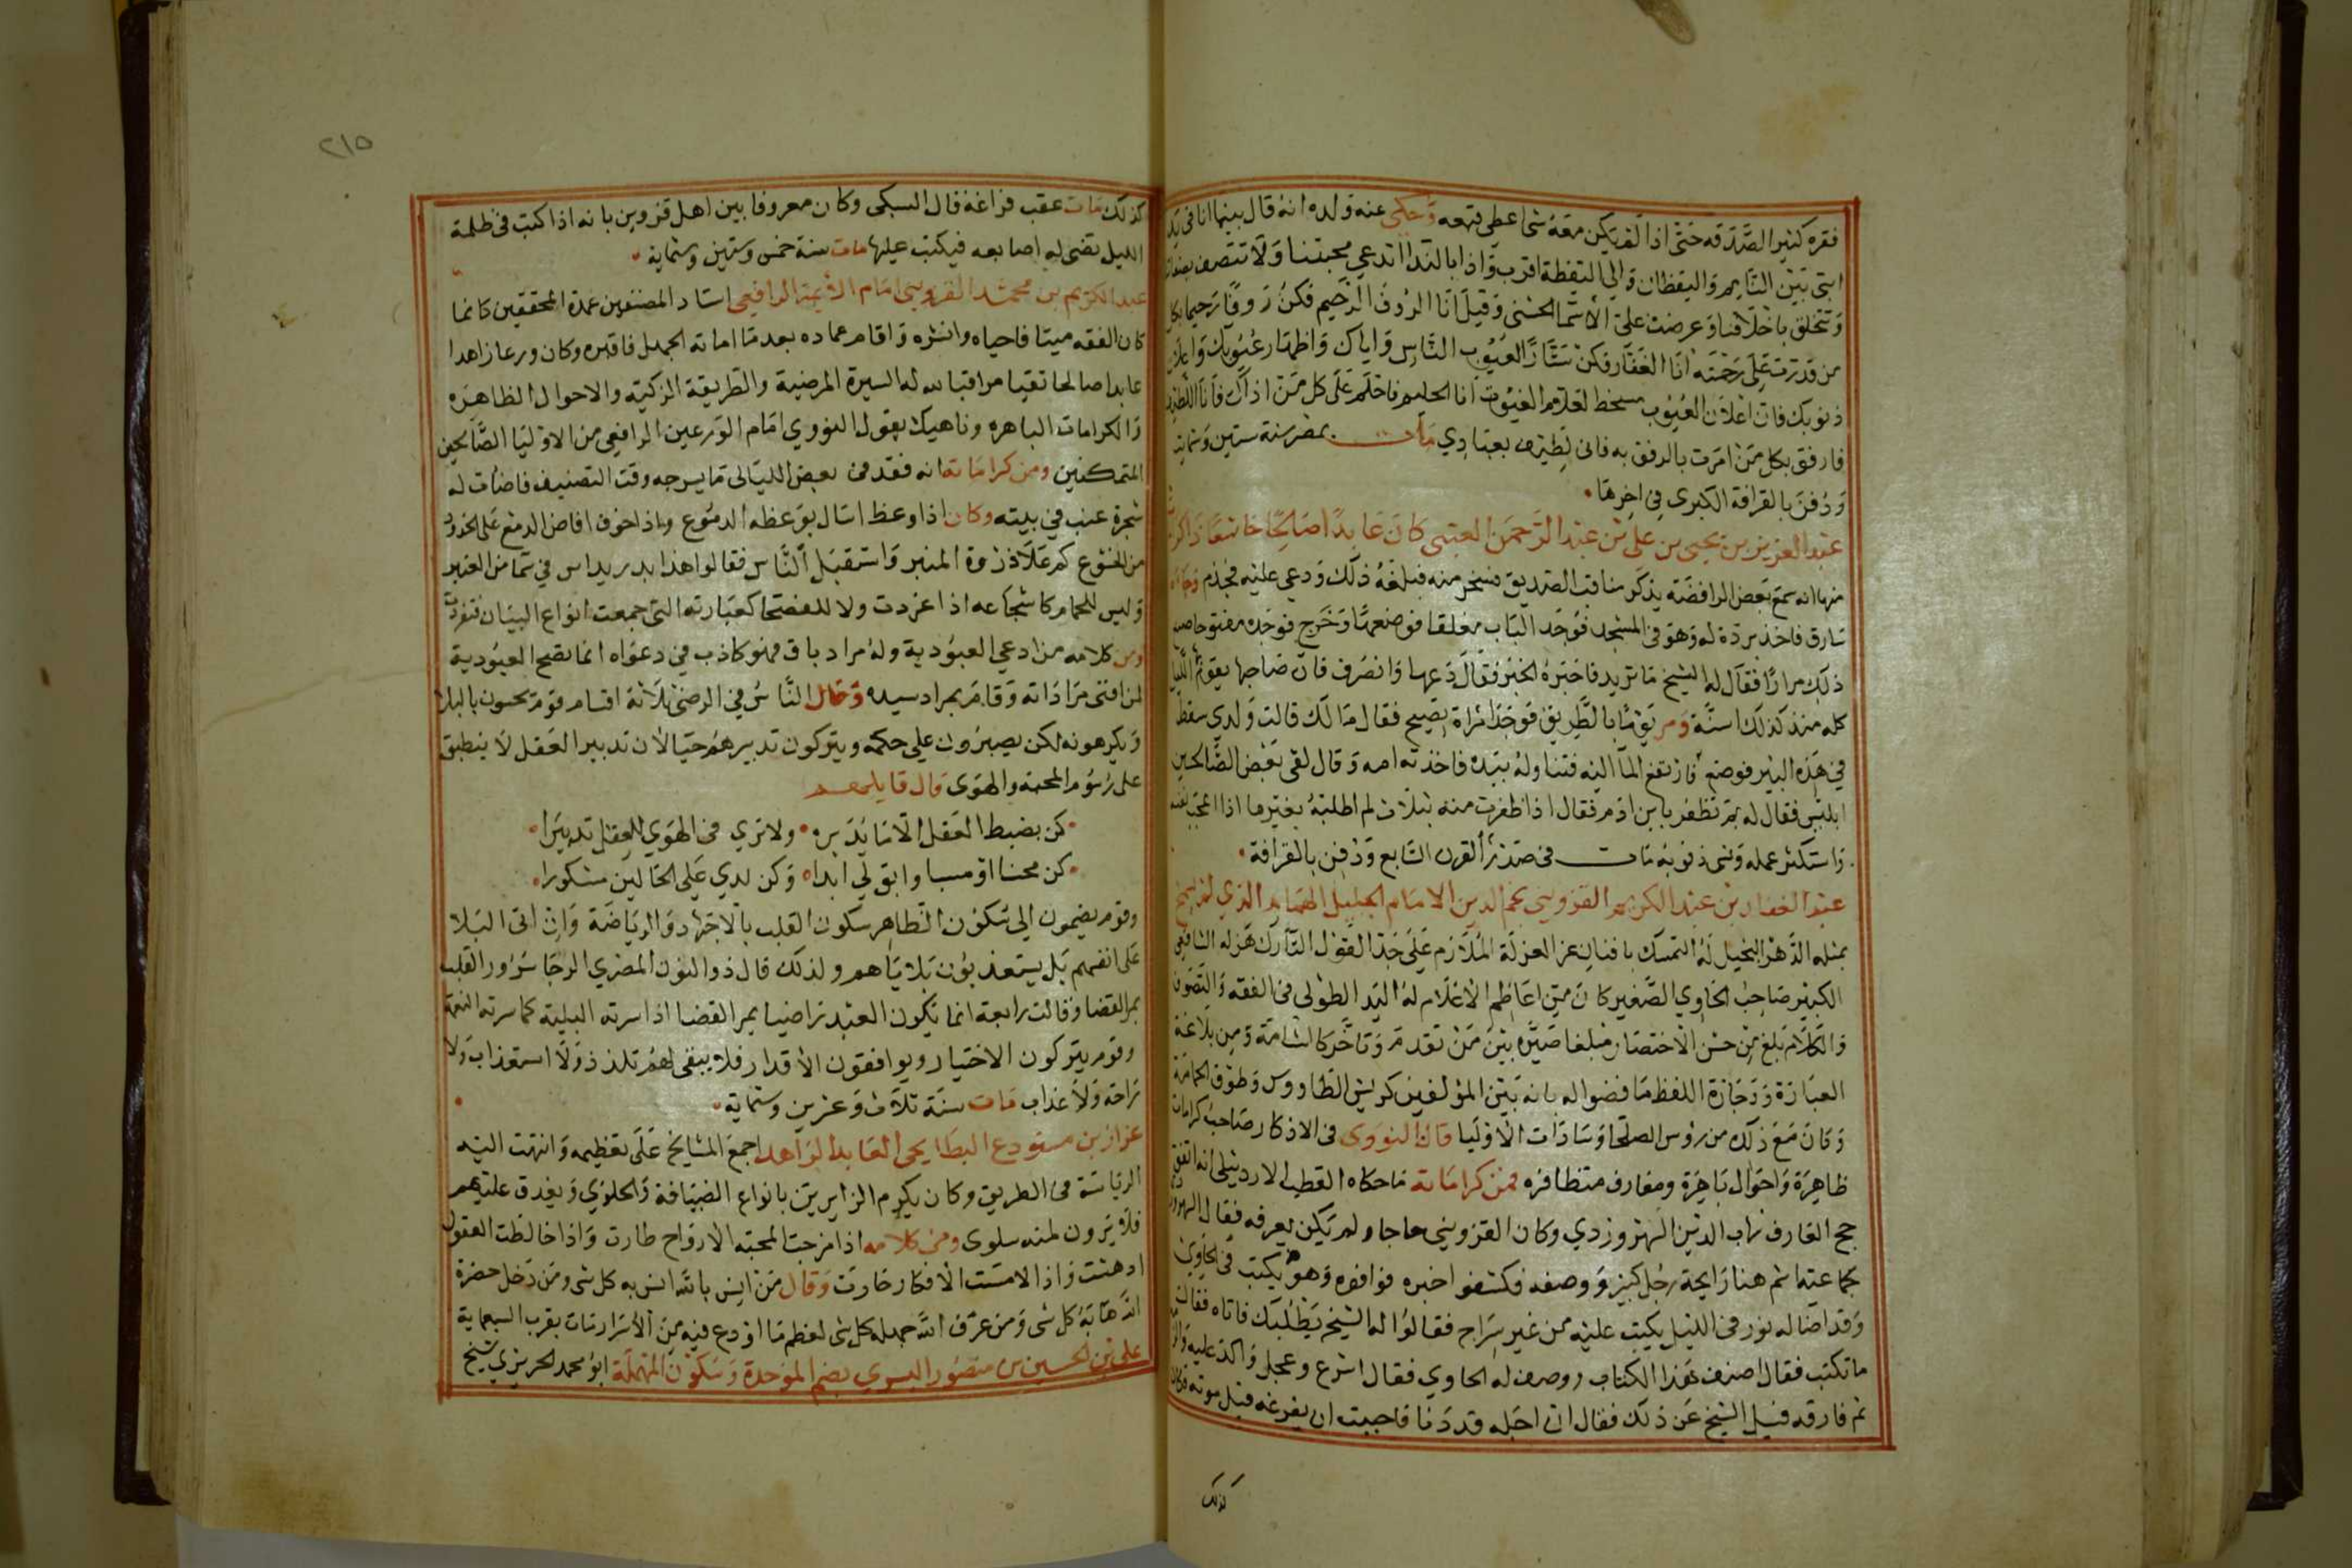 فقره كثير الصدقه حتى اذا لم يكن معه شئ اعطى قبعه وحكى عنه ولده انه قال بينما انا في
ابتى بين النايم واليقظان والي اليقظة اقرب واذا بالندا اتدعي محبتنا ولا تتصف بصفاتنا
وتتخلق باخلاقنا وعرضت علي الاسما الحسنى وقيل انا الرؤف الرحيم فكن رؤفا رحيما بكل
من قدرت علي رحمته انا الغفار فكن ستارا لعيوب الناس واياك واظهار عيوبك واعلان
ذنوبك فان اعلان العيوب مسخط لعلام الغيوب انا الحليم فاحلم على كل من اذاك فانا اللطيف
فارفق بكل من امرت بالرفق به فانى لطيف بعبادي مات بمصر سنة ستين وستماية
ودفن بالقرافة الكبرى في اخرها
عبد العزيز بن يحيى بن علي بن عبد الرحمن العبتى كان عابدا صالحا خاشعا
منها انه سمع بعض الرافضة يذكر مناقب الصديق فسخر منه فبلغه ذلك ودعى عليه فجذم وجاه
سارق فاخذ بردة له وهو في المسجد فوجد الباب مغلقا فوضعها وخرج فوجده مفتوحا
ذلك مرارا فقال له الشيخ ما تريد فاخبره الخبر فقال دعها وانصرف فان صاحبها يقوم الليل
كله منذ كذلك سنة ومر يوما بالطريق فوجد امراة تصيح فقال مالك قالت ولدي سقط
في هذه البير فوضع فارتفع الما اليه فتناوله بيده فاخذته امه وقال لقى بعض الصالحين
ابليس فقال له بم تظفر بابن ادم فقال اذا ظفرت منه بثلاث لم اطلبه بغيرها اذا اعجب بنفسه
واستكثر عمله ونسى ذنوبه مات في صدر القرن السابع ودفن بالقرافة
عبد الغفار بن عبد الكريم القزويني نجم الدين الامام الجليل الهمام الذي لم يسمح
بمثله الدهر البخيل له التمسك بافنان عز العزلة الملازم على جد القول التارك هزله الشافعى
الكبير صاحب الحاوي الصغير كان من اعاظم الاعلام له اليد الطولى في الفقه والتصوف
والكلام بلغ من حسن الاختصار مبلغا صيره بين من تقدم وتاخر كالشامة ومن بلاغة
العبارة ووجازة اللفظ ما قضوا له بانه بين المؤلفين كريش الطاووس وطوق الحمامة
وكان مع ذلك من رؤس الصلحا وسادات الاوليا قال النووى في الاذكار صاحب كرامات
ظاهرة واحوال باهرة ومعارف متظافره فمن كراماته ماحكاه القطب الاردبيلى انه اتفق
حج العارف شهاب الدين السهروردي وكان القزويني حاجا ولم يكن يعرفه فقال
لجماعته اشم هنا رايحة رجل كبير ووصفه فكشفوا خبره فوافوه وهو يكتب في الحاوي
وقد اضا له نور في الليل يكتب عليه من غير سراج فقالوا له الشيخ يطلبك فاتاه فقال
ما تكتب فقال اصنف هذا الكتاب ووصف له الحاوي فقال اسرع وعجل واكد عليه
ثم فارقه فقيل الشيخ عن ذلك فقال ان اجله قد دنا فاحببت ان يفرغه قبل موته فكان
كذلك
٢١٥
كذلك مات عقب فراغه قال السبكى وكان معروفا بين اهل قزوين بانه اذا كتب في ظلمة
الليل تضى له اصابعه فيكتب عليها مات سنة خمس وستين وستماية
عبد الكريم بن محمد القزويني امام الائمة الرافعي استاد المصنفين عمدة المحققين كانما
كان الفقه ميتا فاحياه وانشره واقام عماده بعد ما اماته الجهل فاقبره وكان ورعا زاهدا
عابدا صالحا تقيا مراقبا لله له السيرة المرضية والطريقة الزكية والاحوال الظاهره
والكرامات الباهره وناهيك بقول النووي امام الورعين الرافعي من الاوليا الصالحين
المتمكنين ومن كراماته انه فقد في بعض الليالى ما يسرجه وقت التصنيف فاضات له
شجرة عنب في بيته وكان اذا وعظ اسال بوعظه الدموع واذا خوف افاض الدمع على الخدود
من الخشوع كم علا ذروة المنبر واستقبل الناس فقالوا هذا بدر يداس في سما من العنبر
وليس للحمام كاسجاعه اذا غردت ولا للفصحا كعبارته التى جمعت انواع البيان فتفردت
ومن كلامه من ادعي العبودية وله مراد باق فهو كاذب في دعواه انما تصح العبودية
لمن افنى مراداته وقام بمراد سيده وقال الناس في الرضى ثلاثة اقسام قوم يحسون بالبلا
ويكرهونه لكن يصبرون علي حكمه ويتركون تدبيرهم حبا لان تدبير العقل لا ينطبق
على رسوم المحبة والهوى قال قايلهم
لن يضبط العقل الا ما يدبره ولا ترى في الهوى للعقل تدبيرا
كن محسنا او مسيا وابق لي ابدا وكن لدي على الحالين مشكورا
وقوم يضمون الي سكون الظاهر سكون القلب بالاجتهاد والرياضة وان اتى البلا
على انفسهم بل يستعذبون بلاياهم ولذلك قال ذو النون المصري الرضا سرور القلب
بمر القضا وقالت رابعة انما يكون العبد راضيا بمر القضا اذا سرته البلية كما سرته النعمة
وقوم يتركون الاختيار ويوافقون الاقدار فلا يبقى لهم تلذذ ولا استعذاب ولا
راحة ولا عذاب مات سنة ثلاث وعشرين وستماية
عزاز بن مستودع البطايحى العابد الزاهد اجمع المشايخ على تعظيمه وانتهت اليه
الرياسة في الطريق وكان يكرم الزايرين بانواع الضيافة والحلوى ويغدق عليهم
فلا يرون لمنه سلوى ومن كلامه اذا مزجت المحبة الارواح طارت واذا خالطت العقول
ادهشت واذا لامست الافكار حارت وقال من انس بالله انس به كل شى ومن دخل حضرة
الله هابه كل شى ومن عرف الله جهله كل شى لعظم ما اودع فيه من الاسرار مات بقرب السبعماية
علي بن الحسين بن منصور البسري بضم الموحدة وسكون المهملة ابو محمد الحريري شيخ